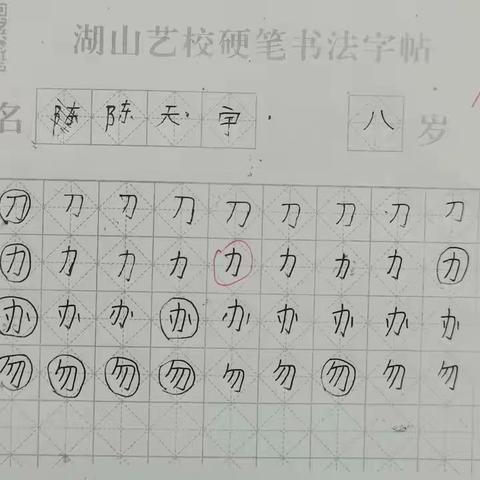 湖山艺校硬笔书法字帖
名 陈天宇 八 岁
刀刀刀刀刀刀刀刀刀
力力力力力力力力力
办办办办办办办办办
勿勿勿勿勿勿勿勿勿